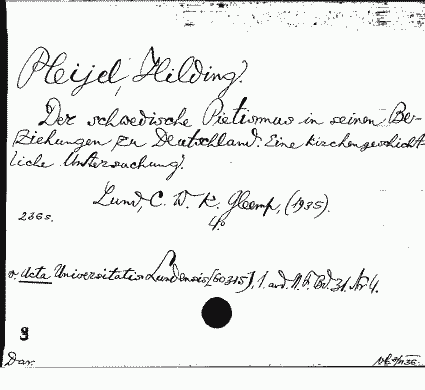 Pleijel, Hilding.
Der schwedische Pietismus in seinen Be-
ziehungen zu Deutschland. Eine kirchengeschicht-
liche Untersuchung.
Lund, C. W. K. Gleerup, (1935).
236 s. 4o
v. Acta Universitatis Lundensis [60315], 1. avd. N. F. Bd. 31. Nr 4.
g
Dav.